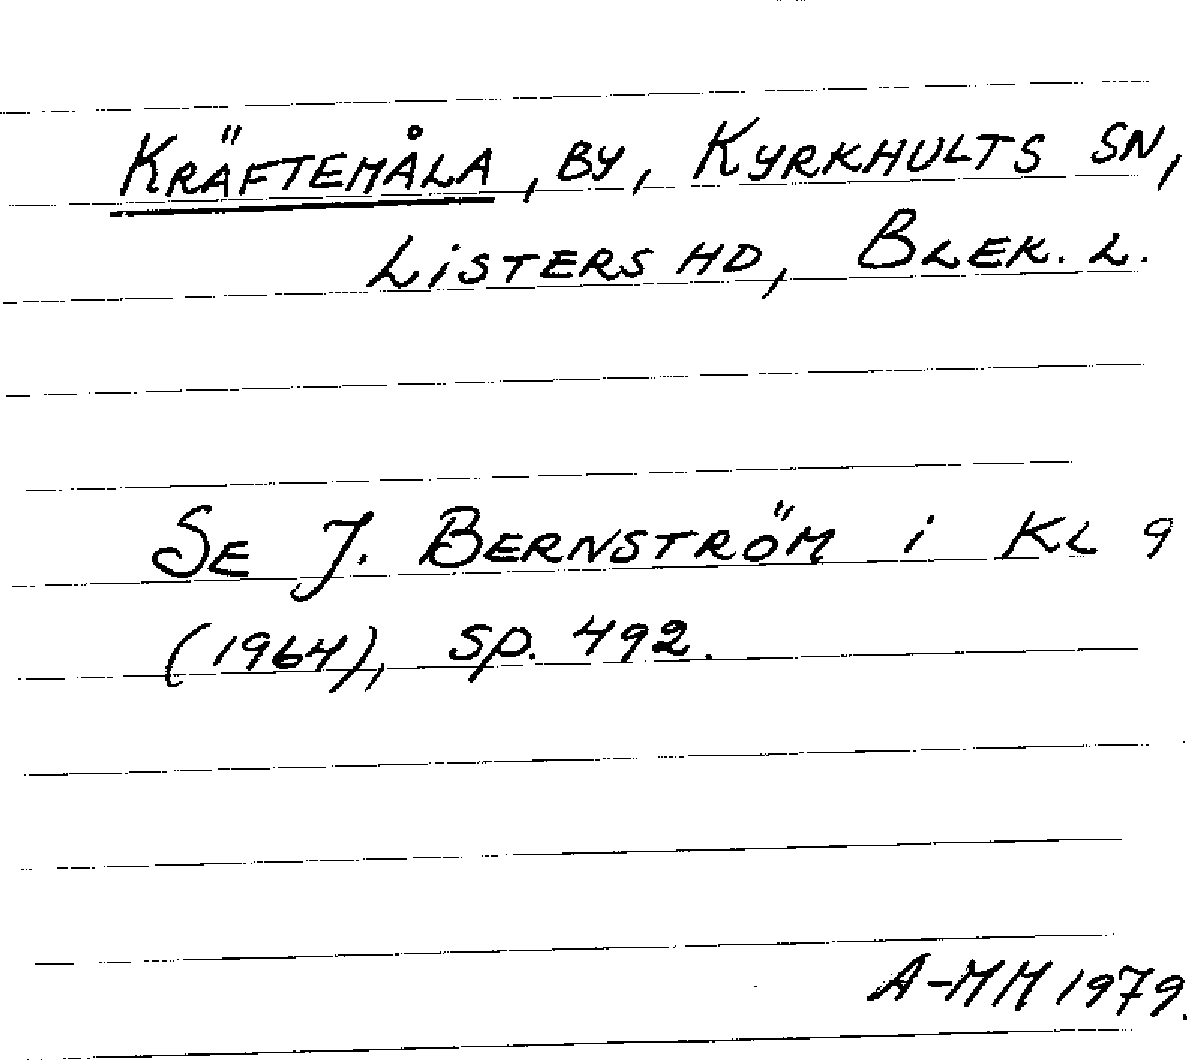 KRÄFTEMÅLA, BY, KYRKHULTS SN,
LISTERS HD, BLEK. L.
SE J. BERNSTRÖM i KL 9
(1964), SP. 492.
A-MM 1979.